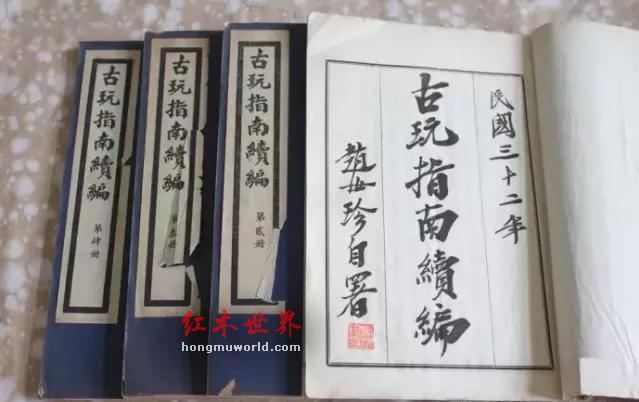 古玩指南續編
第肆册
古玩指南續編
第叁册
古玩指南續編
第貳册
民國三十二年
古玩指南續編
趙汝珍自署
红木世界
hongmuworld.com